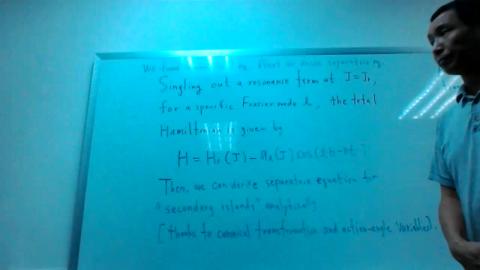 We
Singling out a resonance term at J=J₀,
for a specific Fourier mode k, the total
Hamiltonian is given by
H = H₀(J) - (J) cos(
Then, we can derive separatrix equation for
"secondary islands" analytically
[thanks to canonical transformation and action-angle variables].